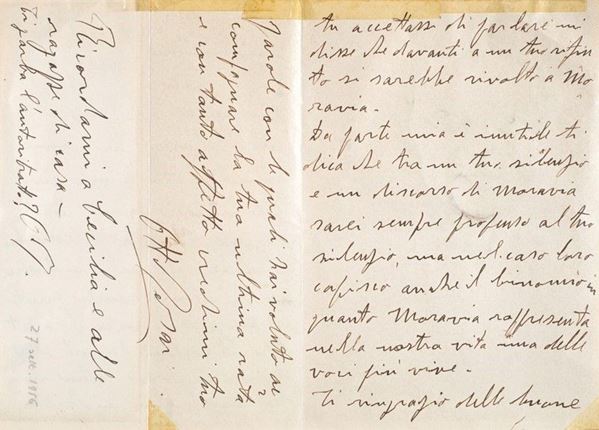 tu accettassi di parlare mi
disse che davanti a un tuo rifiu
to si sarebbe rivolto a Mo
ravia.
Da parte mia è inutile ti
dica che tra un tuo silenzio
e un discorso di Moravia
sarei sempre propenso al tuo
silenzio, ma nel caso loro
capisco anche il binomio in
quanto Moravia rappresenta
nella nostra vita una delle
voci più vive.
Ti ringrazio delle buone
parole con le quali hai voluto ac
compagnare la tua ultima
e con tanto affetto credimi tuo
Rosai
Ricordami a Cecilia e alle
ragazze di casa –
Ti garba l'autoritratto?
27 sett. 1956